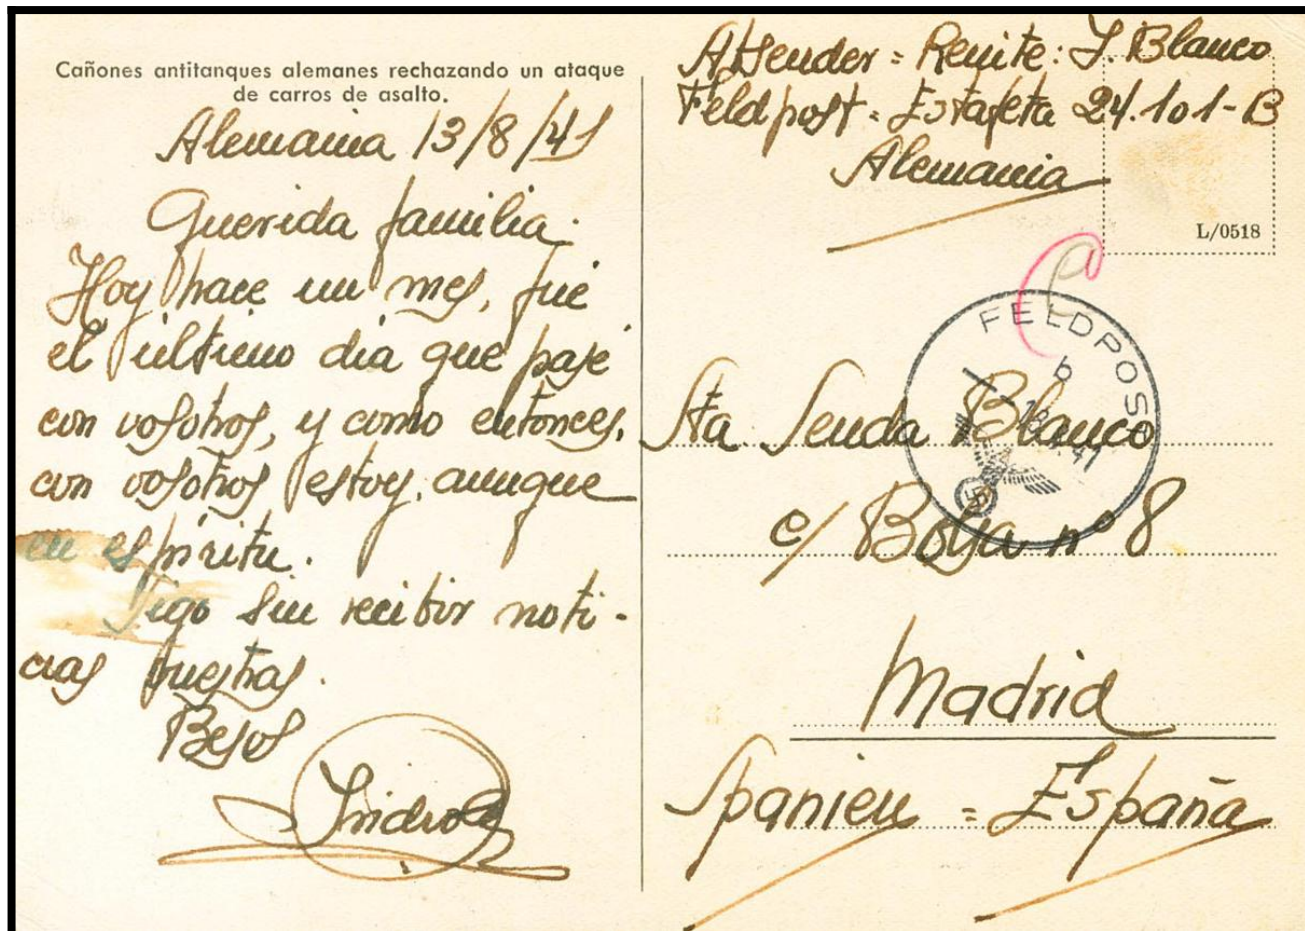 Cañones antitanques alemanes rechazando un ataque
de carros de asalto.
Alemania 13/8/41
Querida familia.
Hoy hace un mes, fue
el último dia que pasé
con vosotros, y como entonces,
con vosotros estoy, aunque
en espíritu.
Sigo sin recibir noti-
cias vuestras.
Besos
Isidro
Absender = Remite: I. Blanco
Feldpost = Estafeta 24.101-B
Alemania
L/0518
FELDPOST
b
Sta. Senda Blanco
c/ Bolja nº 8
Madrid
Spanien = España